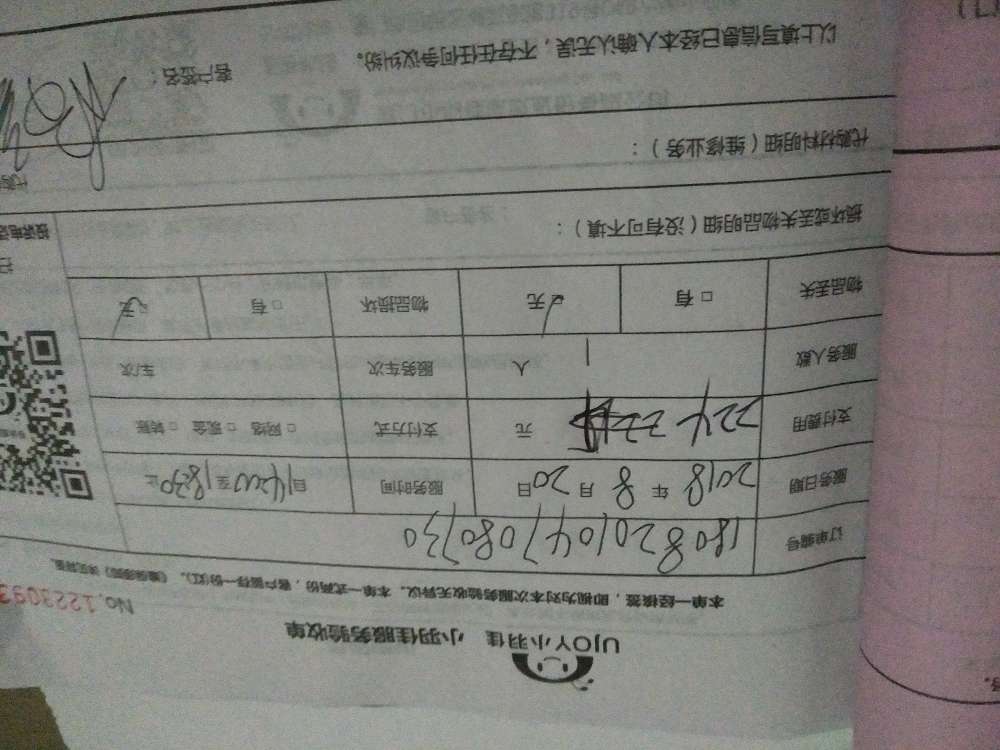 UJOY小羽佳 小羽佳服务验收单
本单一经核签，即视为对本次服务验收无异议。本单一式两份，客户留存一份(红)。
No.1223093
订单编号 1808201047080730
服务日期 2018 年 8 月 20 日 服务时间 自 14:00 至 18:30 止
支付费用 224 元 支付方式 □ 网络 □ 现金 □ 转账
服务人数 1 人 服务车次 车/次
物品丢失 □ 有 ☑ 无 物品损坏 □ 有 ☑ 无
损坏或丢失物品明细（没有可不填）：
代购材料明细（维修业务）：
以上填写信息已经本人确认无误，不存在任何争议纠纷。
客户签名：
投诉电话
代购